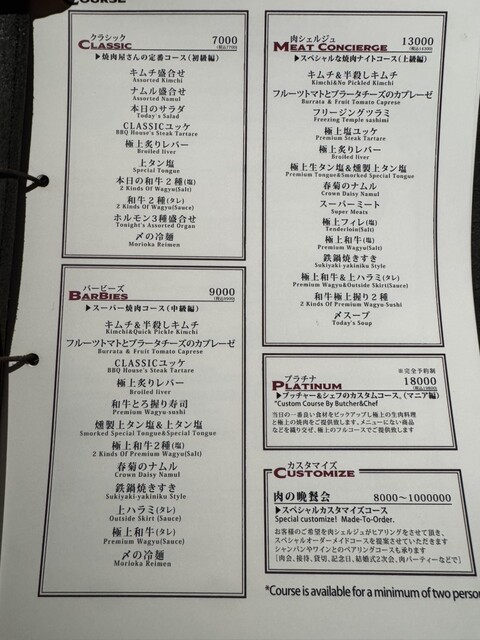 COURSE
クラシック
CLASSIC
7000
(税込7700)
▶焼肉屋さんの定番コース(初級編)
キムチ盛合せ
Assorted Kimchi
ナムル盛合せ
Assorted Namul
本日のサラダ
Today's Salad
CLASSICユッケ
BBQ House's Steak Tartare
極上炙りレバー
Broiled liver
上タン塩
Special Tongue
本日の和牛2種(塩)
2 Kinds Of Wagyu(Salt)
和牛2種(タレ)
2 Kinds Of Wagyu(Sauce)
ホルモン3種盛合せ
Tonight's Assorted Organ
〆の冷麺
Morioka Reimen
バービーズ
BARBIES
9000
(税込9900)
▶スーパー焼肉コース(中級編)
キムチ&半殺しキムチ
Kimchi&Quick Pickle Kimchi
フルーツトマトとブラータチーズのカプレーゼ
Burrata & Fruit Tomato Caprese
CLASSICユッケ
BBQ House's Steak Tartare
極上炙りレバー
Broiled liver
和牛とろ握り寿司
Premium Wagyu-sushi
燻製上タン塩&上タン塩
Smorked Special Tongue&Special Tongue
極上和牛2種(塩)
2 Kinds Of Premium Wagyu(Salt)
春菊のナムル
Crown Daisy Namul
鉄鍋焼きすき
Sukiyaki-yakiniku Style
上ハラミ(タレ)
Outside Skirt (Sauce)
極上和牛(タレ)
Premium Wagyu(Sauce)
〆の冷麺
Morioka Reimen
肉シェルジュ
MEAT CONCIERGE
13000
(税込14300)
▶スペシャルな焼肉ナイトコース(上級編)
キムチ&半殺しキムチ
Kimchi&No Pickled Kimchi
フルーツトマトとブラータチーズのカプレーゼ
Burrata & Fruit Tomato Caprese
フリージングツラミ
Freezing Temple sashimi
極上塩ユッケ
Premium Steak Tartare
極上炙りレバー
Broiled liver
極上生タン塩&燻製上タン塩
Premium Tongue&Smorked Special Tongue
春菊のナムル
Crown Daisy Namul
スーパーミート
Super Meats
極上フィレ(塩)
Tenderloin(Salt)
極上和牛(塩)
Premium Wagyu(Salt)
鉄鍋焼きすき
Sukiyaki-yakiniku Style
極上和牛&上ハラミ(タレ)
Premium Wagyu&Outside Skirt(Sauce)
和牛極上握り2種
2 Kinds Of Premium Wagyu-Sushi
〆スープ
Today's Soup
※完全予約制
プラチナ
PLATINUM
18000
(税込19800)
▶ブッチャー&シェフのカスタムコース。(マニア編)
*Custom Course By Butcher&Chef
当日の一番良い食材をピックアップし極上の生肉料理
と極上の焼肉をご提供致します。メニューにない商品
などを織り交ぜ、極上のフルコースでご提供致します
カスタマイズ
CUSTOMIZE
肉の晩餐会
8000〜1000000
▶スペシャルカスタマイズコース
Special customize! Made-To-Order.
お客様のご希望を肉シェルジュがヒアリングをさせて頂き、
スペシャルオーダーメイドコースを提案させていただきます
シャンパンやワインとのペアリングコースも承ります
[肉会、接待、貸切、記念日、結婚式2次会、肉パーティーなどで]
*Course is available for a minimum of two perso